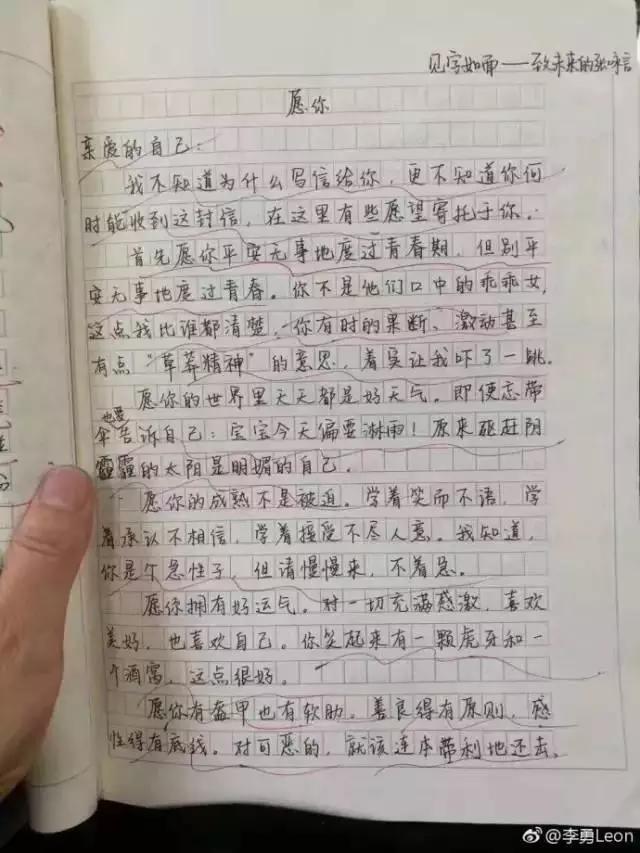 见字如面——致未来的张咏言
愿你
亲爱的自己:
我不知道为什么写信给你,更不知道你何
时能收到这封信,在这里有些愿望寄托于你。
首先愿你平安无事地度过青春期,但别平
安无事地度过青春。你不是他们口中的乖乖女,
这点我比谁都清楚,你有时的果断、激动甚至
有点“草莽精神”的意思,着实让我吓了一跳。
愿你的世界里天天都是好天气。即便忘带
也要
伞告诉自己:宝宝今天偏要淋雨!原来驱赶阴
霾的太阳是明媚的自己。
愿你的成熟不是被迫。学着笑而不语,学
着承认不相信,学着接受不尽人意。我知道,
你是个急性子,但请慢慢来,不着急。
愿你拥有好运气。对一切充满感激,喜欢
美好,也喜欢自己。你笑起来有一颗虎牙和一
个酒窝,这点很好。
愿你有盔甲也有软肋。善良得有原则,感
性得有底线。对可恶的,就该连本带利地还去。
@李勇Leon